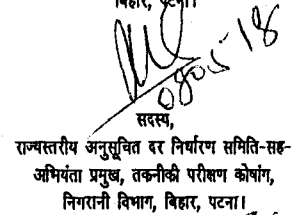 बिहार, पटना।
08.05.18
सदस्य,
राज्यस्तरीय अनुसूचित दर निर्धारण समिति-सह-
अभियंता प्रमुख, तकनीकी परीक्षण कोषांग,
निगरानी विभाग, बिहार, पटना।